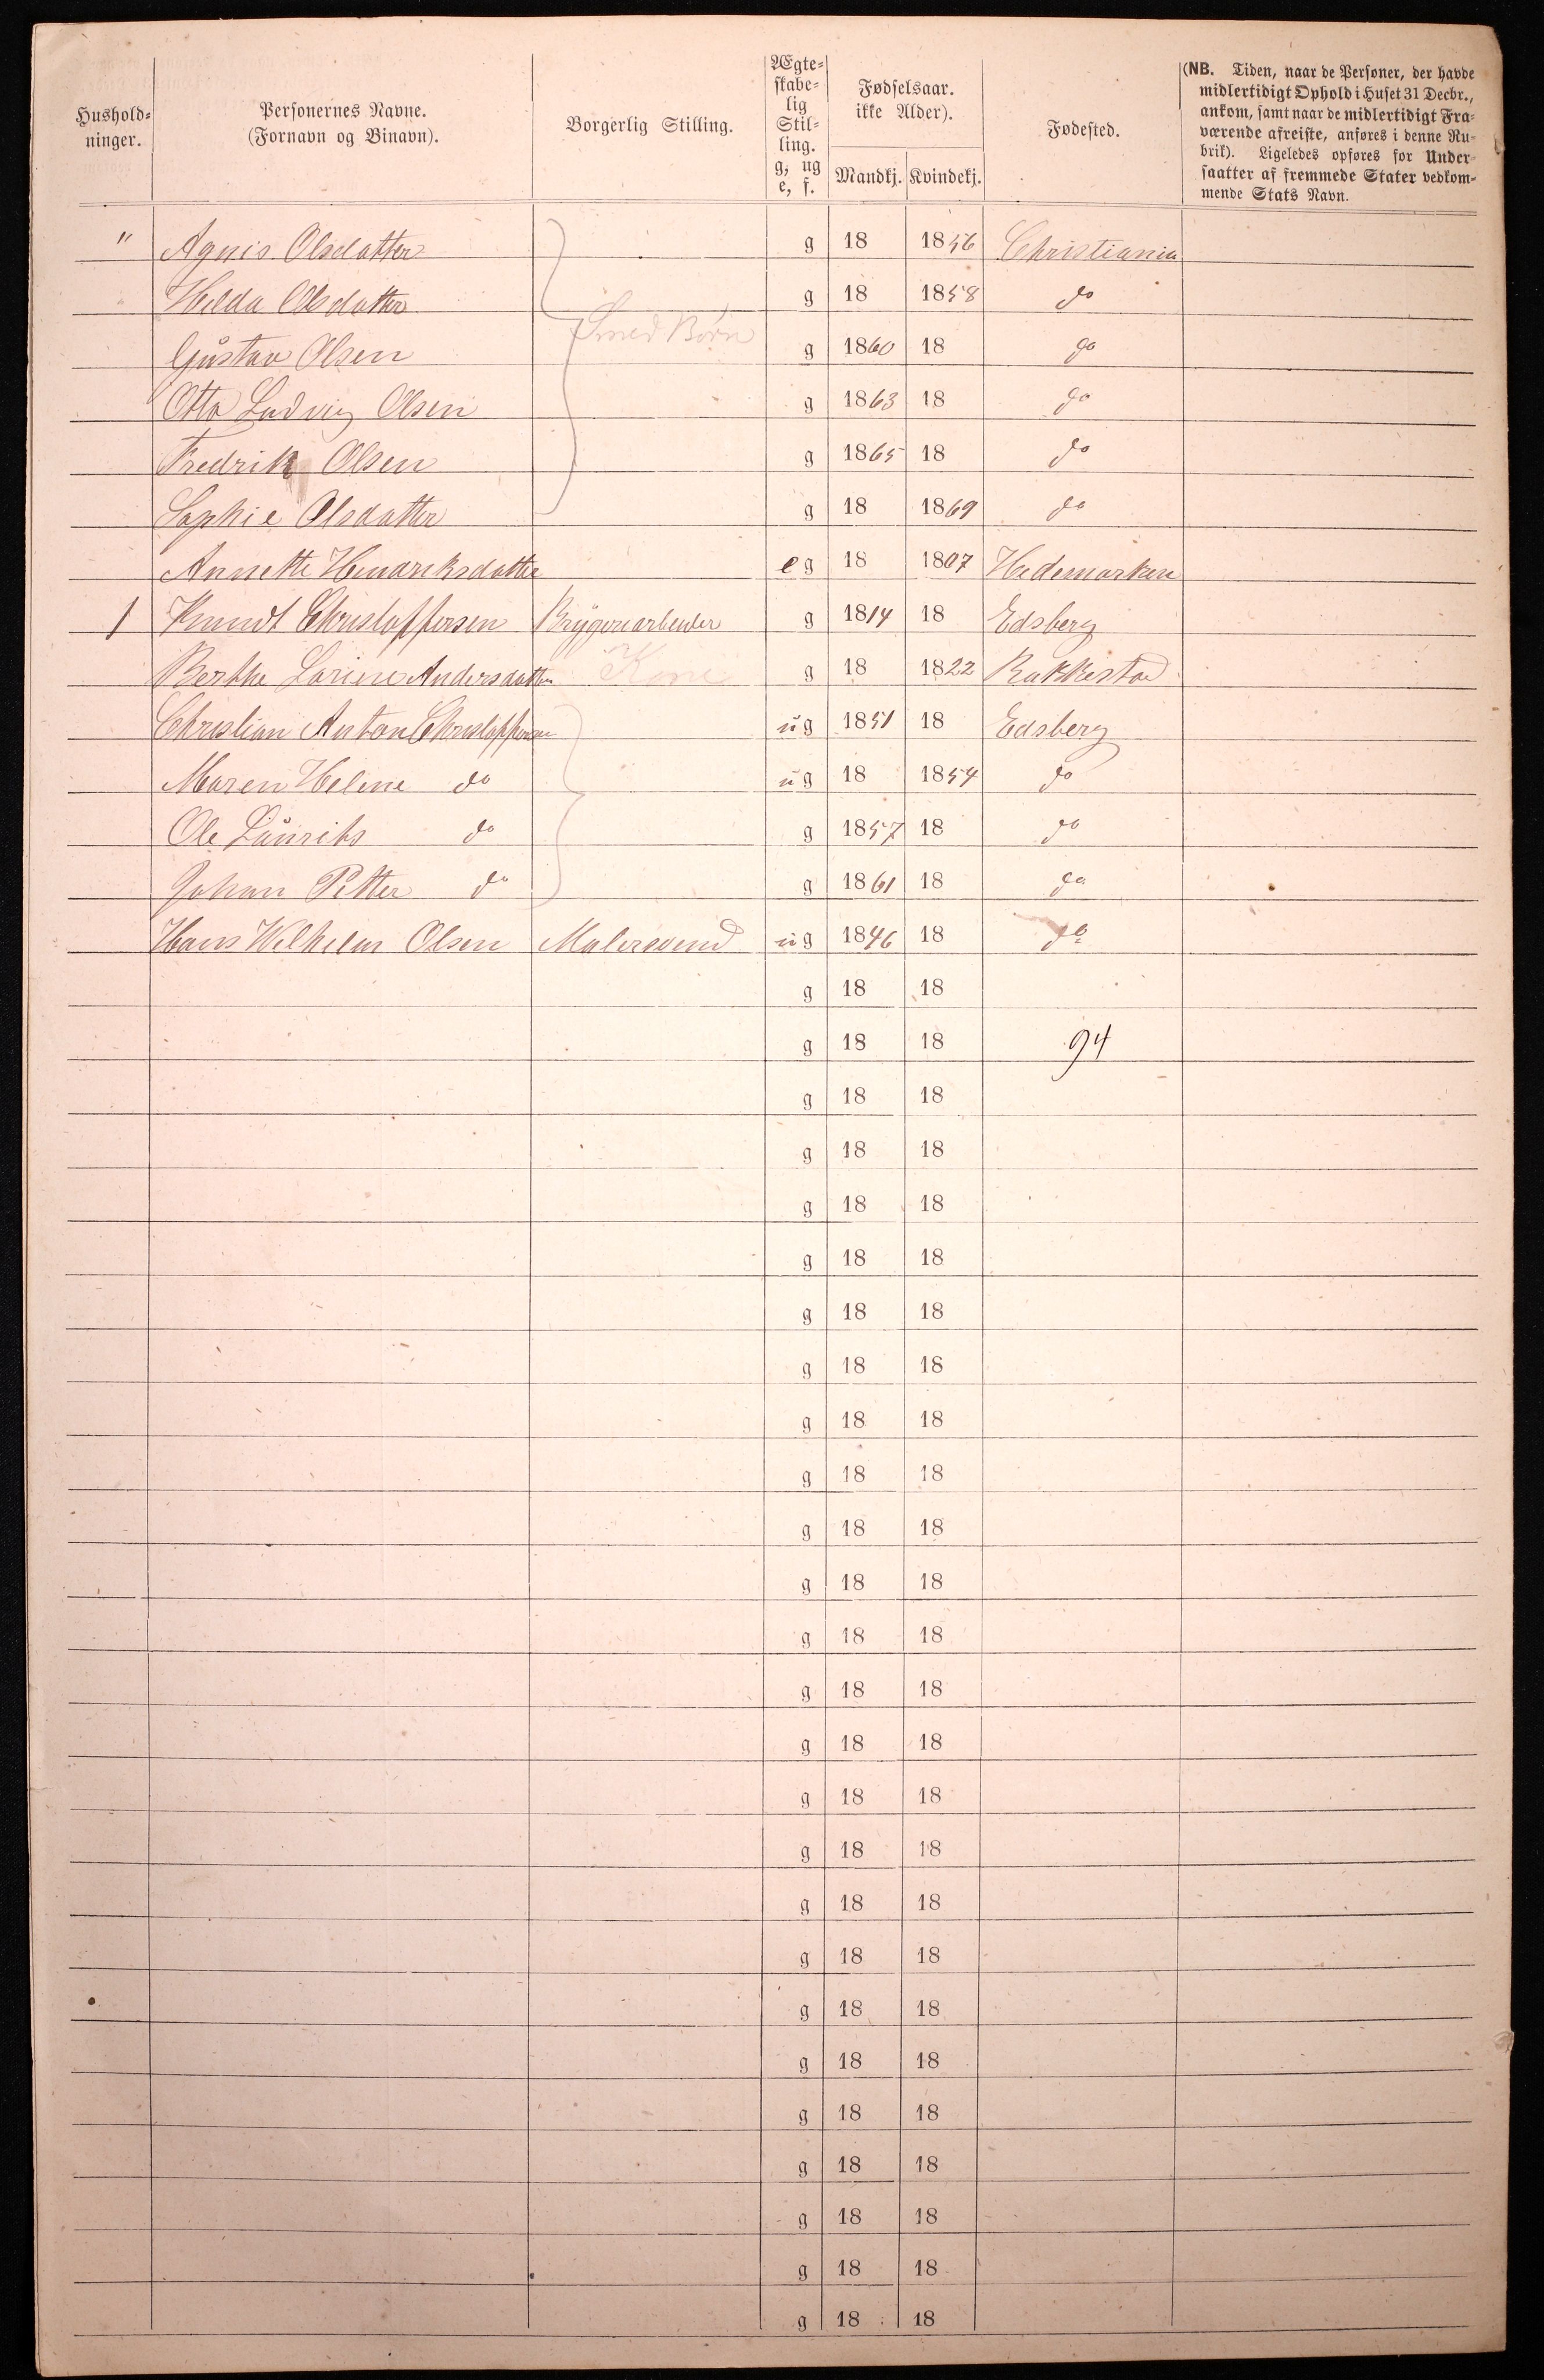 Hushold-
ninger.
Personernes Navne.
(Fornavn og Binavn).
Borgerlig Stilling.
Ægte-
skabe-
lig
Stil-
ling.
g, ug
e, f.
Fødselsaar.
ikke Alder).
Mandkj. Kvindekj.
Fødested.
(NB. Tiden, naar de Personer, der havde
midlertidigt Ophold i Huset 31 Decbr.,
ankom, samt naar de midlertidigt Fra-
værende afreiste, anføres i denne Ru-
brik). Ligeledes opføres for Under-
saatter af fremmede Stater vedkom-
mende Stats Navn.
" Agnis Olsdatter g 18 1856 Christiania
" Hilda Olsdatter g 18 1858 do
Smed Børn
Gustav Olsen g 1860 18 do
Otto Ludvig Olsen g 1863 18 do
Fredrik Olsen g 1865 18 do
Sophie Olsdatter g 18 1869 do
Annette Hendriksdatter eg 18 1807 Hedemarken
1 Knudt Christoffersen Brygeriarbeider g 1814 18 Edsberg
Berthe Larine Andersdatter Kone g 18 1822 Rakkestad
Christian Anton Christoffersen ug 1851 18 Edsberg
Maren Helene do ug 18 1854 do
Ole Laurits do g 1857 18 do
Johan Petter do g 1861 18 do
Hans Wilhelm Olsen Malersvend ug 1846 18 do
g 18 18
g 18 18 94
g 18 18
g 18 18
g 18 18
g 18 18
g 18 18
g 18 18
g 18 18
g 18 18
g 18 18
g 18 18
g 18 18
g 18 18
g 18 18
g 18 18
g 18 18
g 18 18
g 18 18
g 18 18
g 18 18
g 18 18
g 18 18
g 18 18
g 18 18
g 18 18